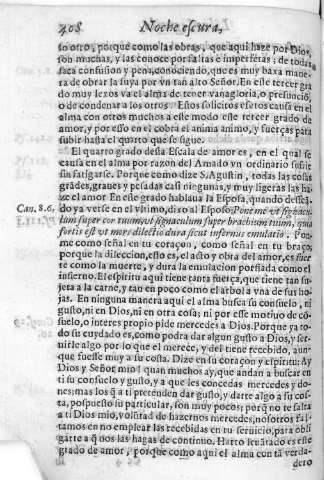 408 Noche escura,
to otro, porque como las obras, que aqui haze por Dios,
son muchas, y las conoce por faltas e imperfetas; de todas
saca confusion y pena, conociendo, que es muy baxa mane-
ra de obrar la suya por vn tan alto Señor. En este tercer gra
do muy lexos va el alma de tener vanagloria, o presunciõ,
o de condenar a los otros. Estos solicitos efetos causa en el
alma con otros muchos a este modo este tercer grado de
amor, y por esso en el cobra el anima animo, y fuerças para
subir hasta el quarto que se sigue.
El quarto grado desta Escala de amor es, en el qual se
causa en el alma por razon del Amado vn ordinario sufrir
sin fatigarse. Porque como dize S. Agustin, todas las cosas
grãdes, graues y pesadas casi ningunas, y muy ligeras las ha
ze el amor. En este grado hablaua la Esposa, quando dessea
Can. 8.6. do ya verse en el vltimo, dixo al Esposo: Pone me vt signacu-
lum super cor tuum, vt signaculum super brachium tuum, quia
fortis est vt mors dilectio dura sicut infernus emulatio. Pon-
me como señal en tu coraçon, como señal en tu braço,
porque la dileccion, esto es, el acto y obra del amor, es fuer
te como la muerte, y dura la emulacion porfiada como el
infierno. El espiritu aqui tiene tanta fuerça, que tiene tan su-
jeta a la carne, y tan en poco como el arbol a vna de sus ho-
jas. En ninguna manera aqui el alma busca su consuelo, ni
gusto, ni en Dios, ni en otra cosa; ni por esse motiuo de cõ-
suelo, o interes propio pide mercedes a Dios. Porque ya to-
do su cuydado es, como podra dar algun gusto a Dios, y ser-
uirle algo por lo que el merece, y del tiene recebido, aun-
que fuesse muy a su costa. Dize en su coraçon y espiritu: Ay
Dios y Señor mio! quan muchos ay, que andan a buscar en
ti su consuelo y gusto, y a que les concedas mercedes y do-
nes; mas los q̃ a ti pretenden dar gusto, y darte algo a su cos-
ta, pospuesto su particular, son muy pocos; porq̃ no te falta
a ti Dios mio, volũtad de hazernos mercedes, nosotros fal-
tamos en no emplear las recebidas en tu seruicio, para obli
garte a q̃ nos las hagas de continuo. Harto leuãtado es este
grado de amor, porque como aqui el alma con tã verda-
dero